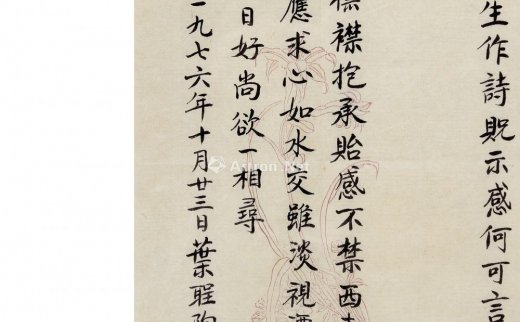 生作詩貺示感何可言
襟抱承貽感不禁西
應求心如水交雖淡視酒
日好尚欲一相尋
一九七六年十月廿三日葉聖陶
Artron.Net